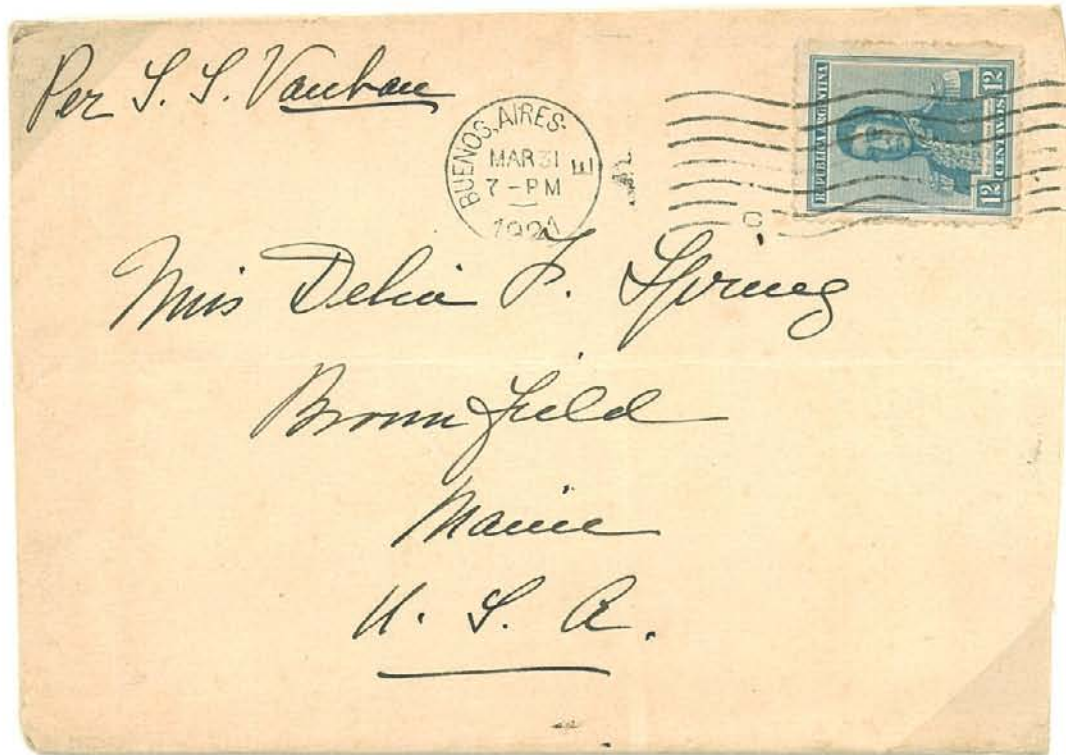 Per S. S. Vauban
BUENOS AIRES.
MAR 31
7-PM
E
REPUBLICA ARGENTINA
12 CENTAVOS 12
Miss Delia F. Spring
Brownfield
Maine
U. S. A.